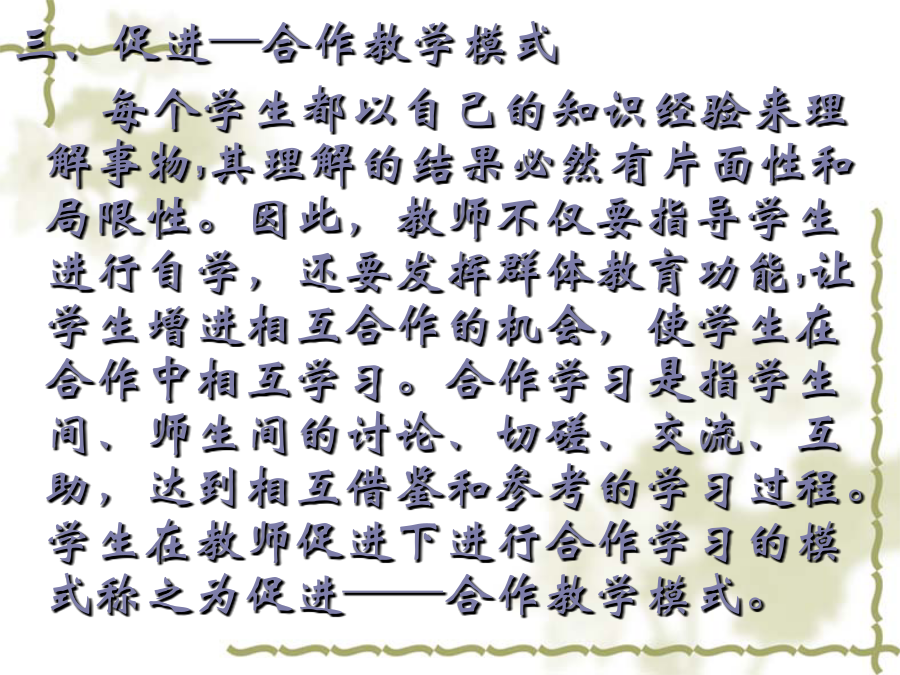 三、促进—合作教学模式
每个学生都以自己的知识经验来理
解事物,其理解的结果必然有片面性和
局限性。因此，教师不仅要指导学生
进行自学，还要发挥群体教育功能,让
学生增进相互合作的机会，使学生在
合作中相互学习。合作学习是指学生
间、师生间的讨论、切磋、交流、互
助，达到相互借鉴和参考的学习过程。
学生在教师促进下进行合作学习的模
式称之为促进——合作教学模式。